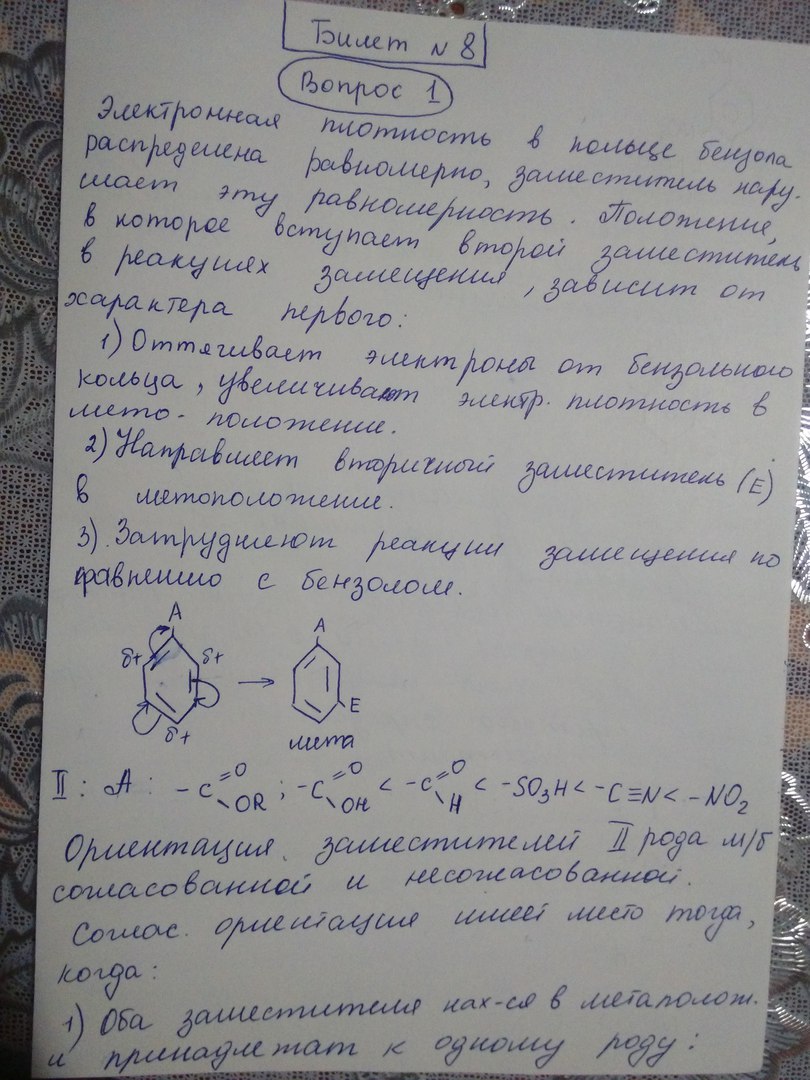 Билет № 8
Вопрос 1
Электронная плотность в кольце бензола
распределена равномерно, заместитель нару-
шает эту равномерность. Положение,
в которое вступает второй заместитель
в реакциях замещения, зависит от
характера первого:
1) Оттягивает электроны от бензольного
кольца, увеличивают электр. плотность в
мето- положение.
2) Направляет вторичный заместитель (E)
в метоположение.
3). Затрудняют реакции замещения по
сравнению с бензолом.
A A
δ+ δ+ → E
δ+ мета
II : A : -C=O OR ; -C=O OH < -C=O H < -SO3H < -C≡N < -NO2
Ориентация заместителей II рода м/б
согласованной и несогласованной.
Соглас. ориентация имеет место тогда,
когда:
1) Оба заместителя нах-ся в метаполож.
и принадлежат к одному роду: